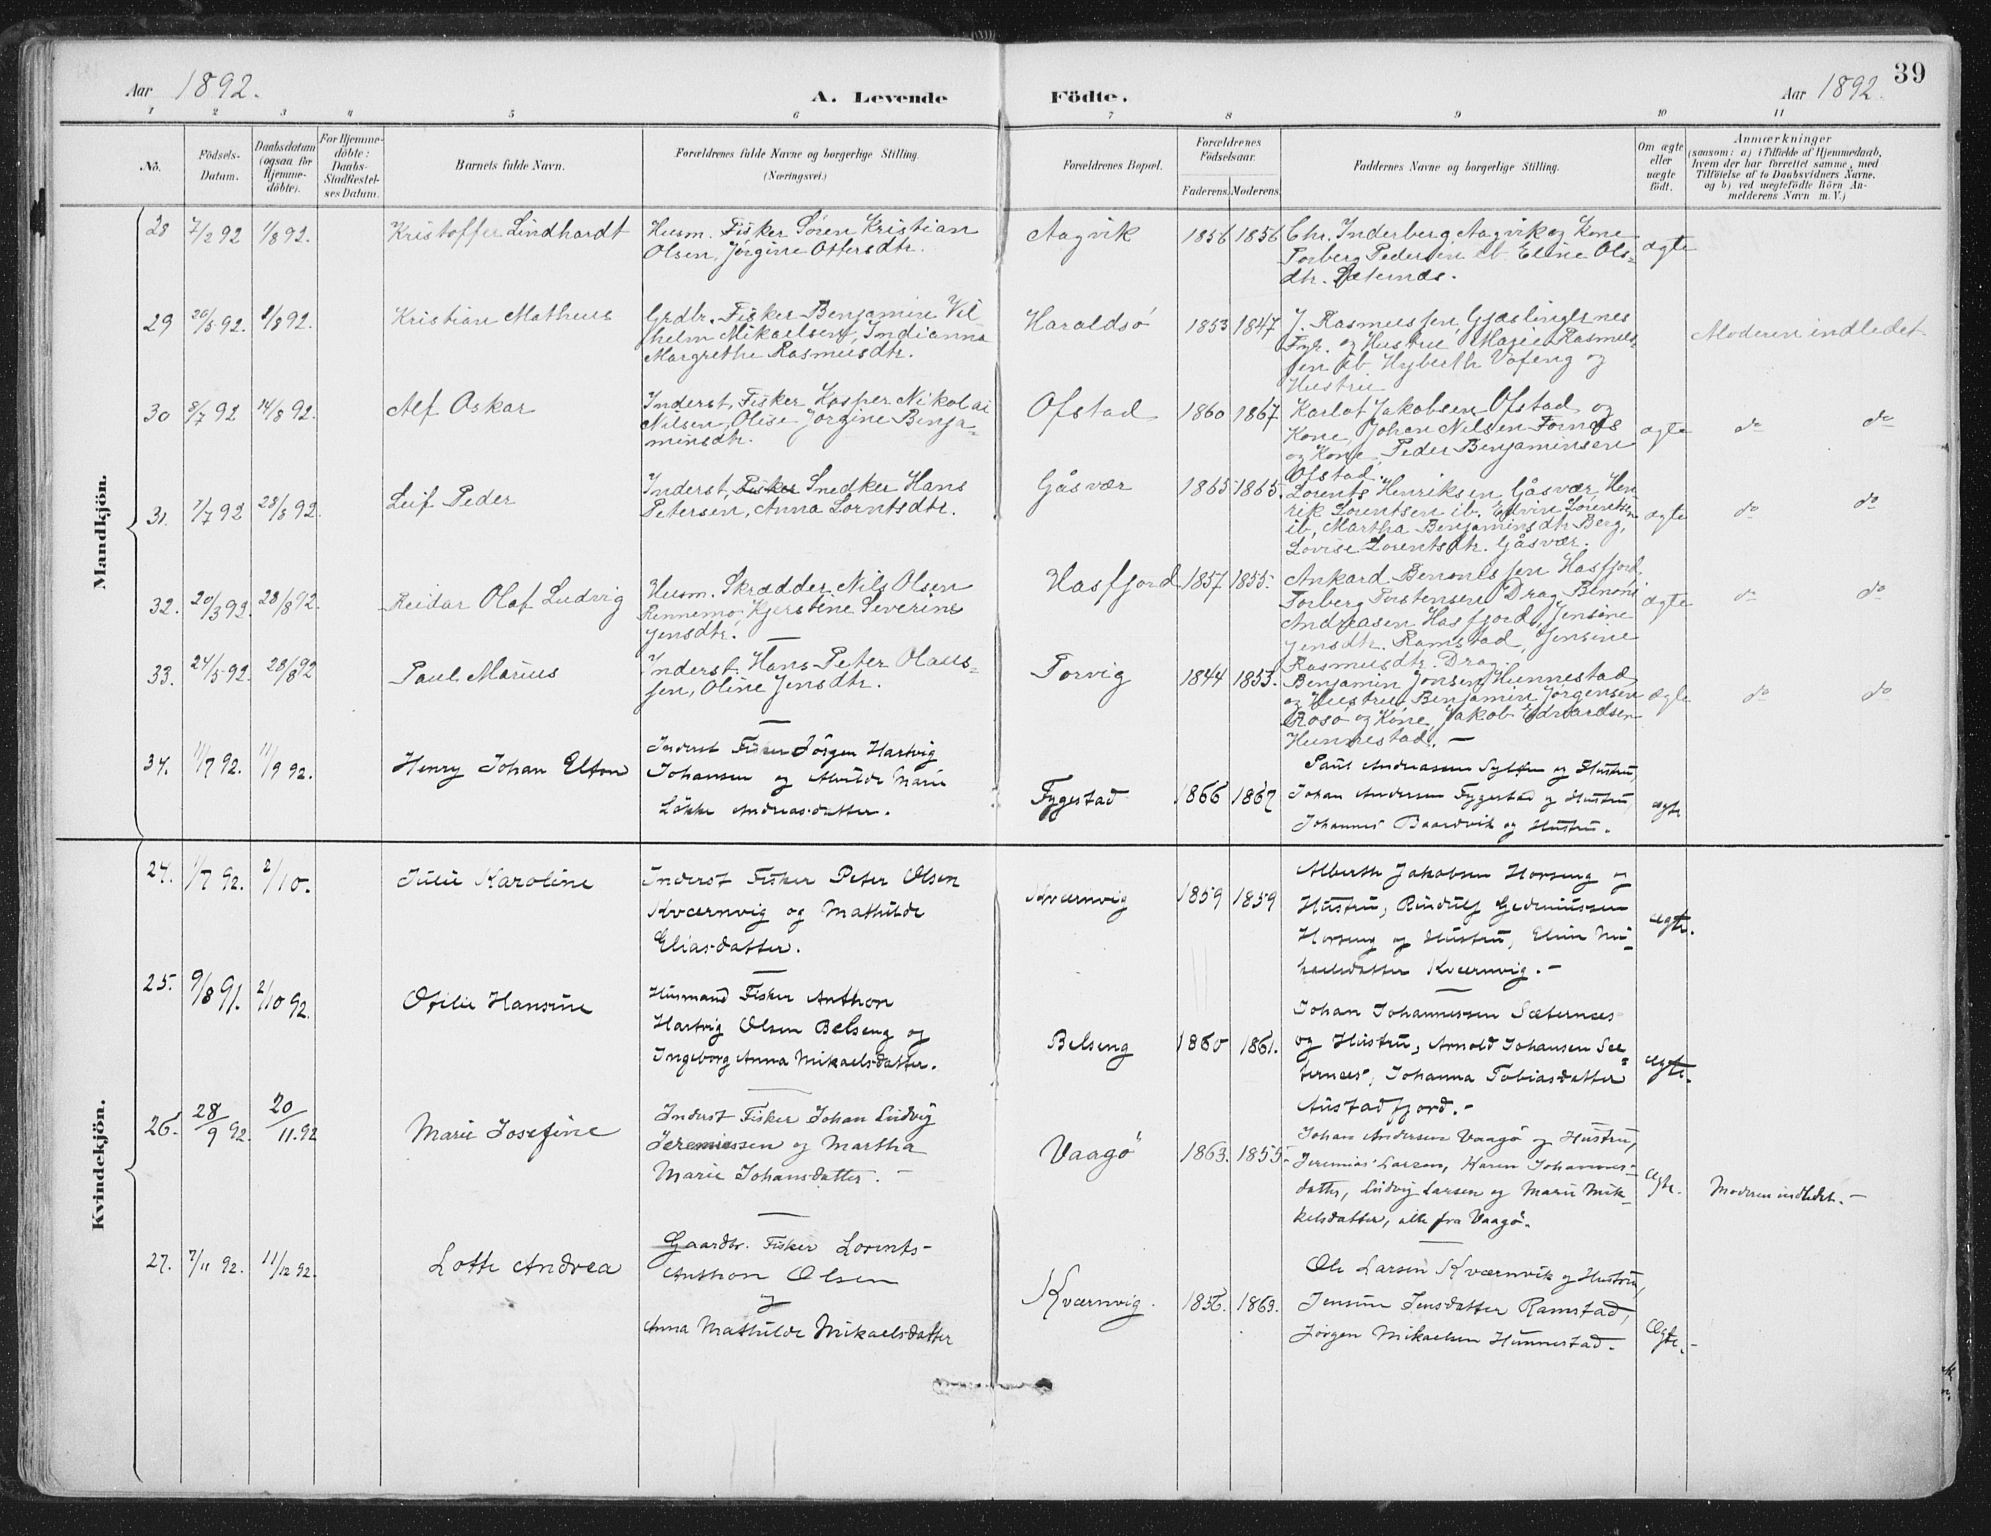 Aar 1892.
A. Levende Födte.
Aar 1892.
39
1 2 3 4 5 6 7 8 9 10 11
No.
Födsels-Datum.
Daabsdatum (ogsaa for Hjemmedöbte).
For Hjemmedöbte: Daabs-Stadfæstelses Datum.
Barnets fulde Navn.
Forældrenes fulde Navne og borgerlige Stilling. (Næringsvei.)
Forældrenes Bopæl.
Forældrenes Födselsaar.
Faderens. Moderens.
Faddernes Navne og borgerlige Stilling.
Om ægte eller uægte födt.
Anmærkninger
(saasom: a) i Tilfælde af Hjemmedaab, hvem der har forrettet samme, med Tilföielse af to Daabsvidners Navne, og b) ved uægtefödte Börn Anmelderens Navn m. V.)
Mandkjön.
28 7/2 92 1/8 92. Kristoffer Lindhardt
Husm. Fisker Sören Kristian
Olsen, Jørgine Ottersdtr.
Aagvik 1856 1856
Chr. Inderberg, Aagvik og Kone
Torberg Pedersen ib. Eline Ols-
dtr. Sæternæs.
ægte
29 20/5 92. 1/8 92. Kristian Matheus
Grdbr. Fisker Benjamin Vil
helm Mikaelsen, Indianna
Margrethe Rasmusdtr.
Haraldsø 1853 1847
J. Rasmussen Gjæslingernes
Fyr. og Hustru, Marie Rasmus-
sen ib. Hybert Vafeng og
Hustru
Moderen indledet
30 8/7 92 14/8 92. Alf Oskar
Inderst, Fisker Kasper Nikolai
Nilsen, Olise Jørgine Benja-
minsdtr.
Ofstad 1860 1867
Karlot Jakobsen Ofstad og
Kone, Johan Nilsen Fornes
og Kone, Peder Benjaminsen
Ofstad.
ægte do do
31. 7/7 92 28/8 92. Leif Peder
Inderst, Fisker Snedker Hans
Petersen, Anna Lorntsdtr.
Gåsvær 1865 1865.
Lorents Henriksen Gåsvær, Hen
rik Lorentsen ib. Edvin Lorentsen
ib, Martha Benjaminsdtr Berg,
Lovise Lorentsdtr. Gåsvær.
ægte do do
32. 20/3 92. 28/8 92. Reidar Olaf Ludvig
Husm. Skrædder Nils Olsen
Rennemo, Kjerstine Severine
Jensdtr.
Hasfjord 1857 1855.
Ankard Benonissen Hasfjord,
Torberg Torstensen Drag, Benoni
Andreasen Hasfjord, Jensine
Jensdtr. Ramstad, Jensine
Rasmusdtr. Drag.
ægte do do
33. 24/5 92. 28/8 92 Paul Marius
Inderst. Hans Peter Olaus-
sen, Oline Jensdtr.
Torvig 1844 1853.
Benjamin Jonsen Hunnestad
og Hustru, Benjamin Jørgensen
Rosø og Kone, Jakob Edvardsen
Hunnestad. –
ægte do do
34. 11/7 92. 11/9 92. Henry Johan Elton
Inderst Fisker Jörgen Hartvig
Johansen og Alvilde Marie
Lökke Andreasdatter.
Fygestad 1866 1867
Paul Andreassen Sylten og Hustru,
Johan Andersen Fygestad og Hustru,
Johannes Baardvik og Hustru.
ægte
Kvindekjön.
24. 11/7 92. 2/10. Julie Karoline
Inderst Fisker Peter Olsen
Kværnvig og Mathilde
Eliasdatter.
Kværnvig 1859 1859
Alberth Jakobsen Horseng og
Hustru, Rindulf Gederiussen
Horseng og Hustru, Eline Mi-
kaelsdatter Kværnvig. –
ægte.
25. 9/8 91. 2/10 92. Otilie Hansine
Husmand Fisker Anthon
Hartvig Olsen Belseng og
Ingeborg Anna Mikaelsdatter.
Belseng 1860 1861.
Johan Johannessen Sæternæs
og Hustru, Arnold Johansen Sæ-
ternæs, Johanna Tobiasdatter
Austadfjord. –
ægte.
26. 28/9 92. 20/11. 92 Marie Josefine
Inderst Fisker Johan Ludvig
Jeremiassen og Martha
Marie Johansdatter. –
Vaagö 1863. 1855.
Johan Andersen Vaagö og Hustru,
Jeremias Larsen, Karen Johannes-
datter, Ludvig Larsen og Marie Mik-
kelsdatter, alle fra Vaagö.
ægte. Moderen indledet. –
27. 7/11 92. 11/12 92. Lotte Andrea
Gaardbr. Fisker Lorents
Anthon Olsen
og
Anna Mathilde Mikaelsdatter
Kværnvig. 1856. 1863.
Ole Larsen Kværnvik og Hustru,
Jensine Jensdatter Ramstad,
Jörgen Mikaelsen Hunnestad.
Ægte. –